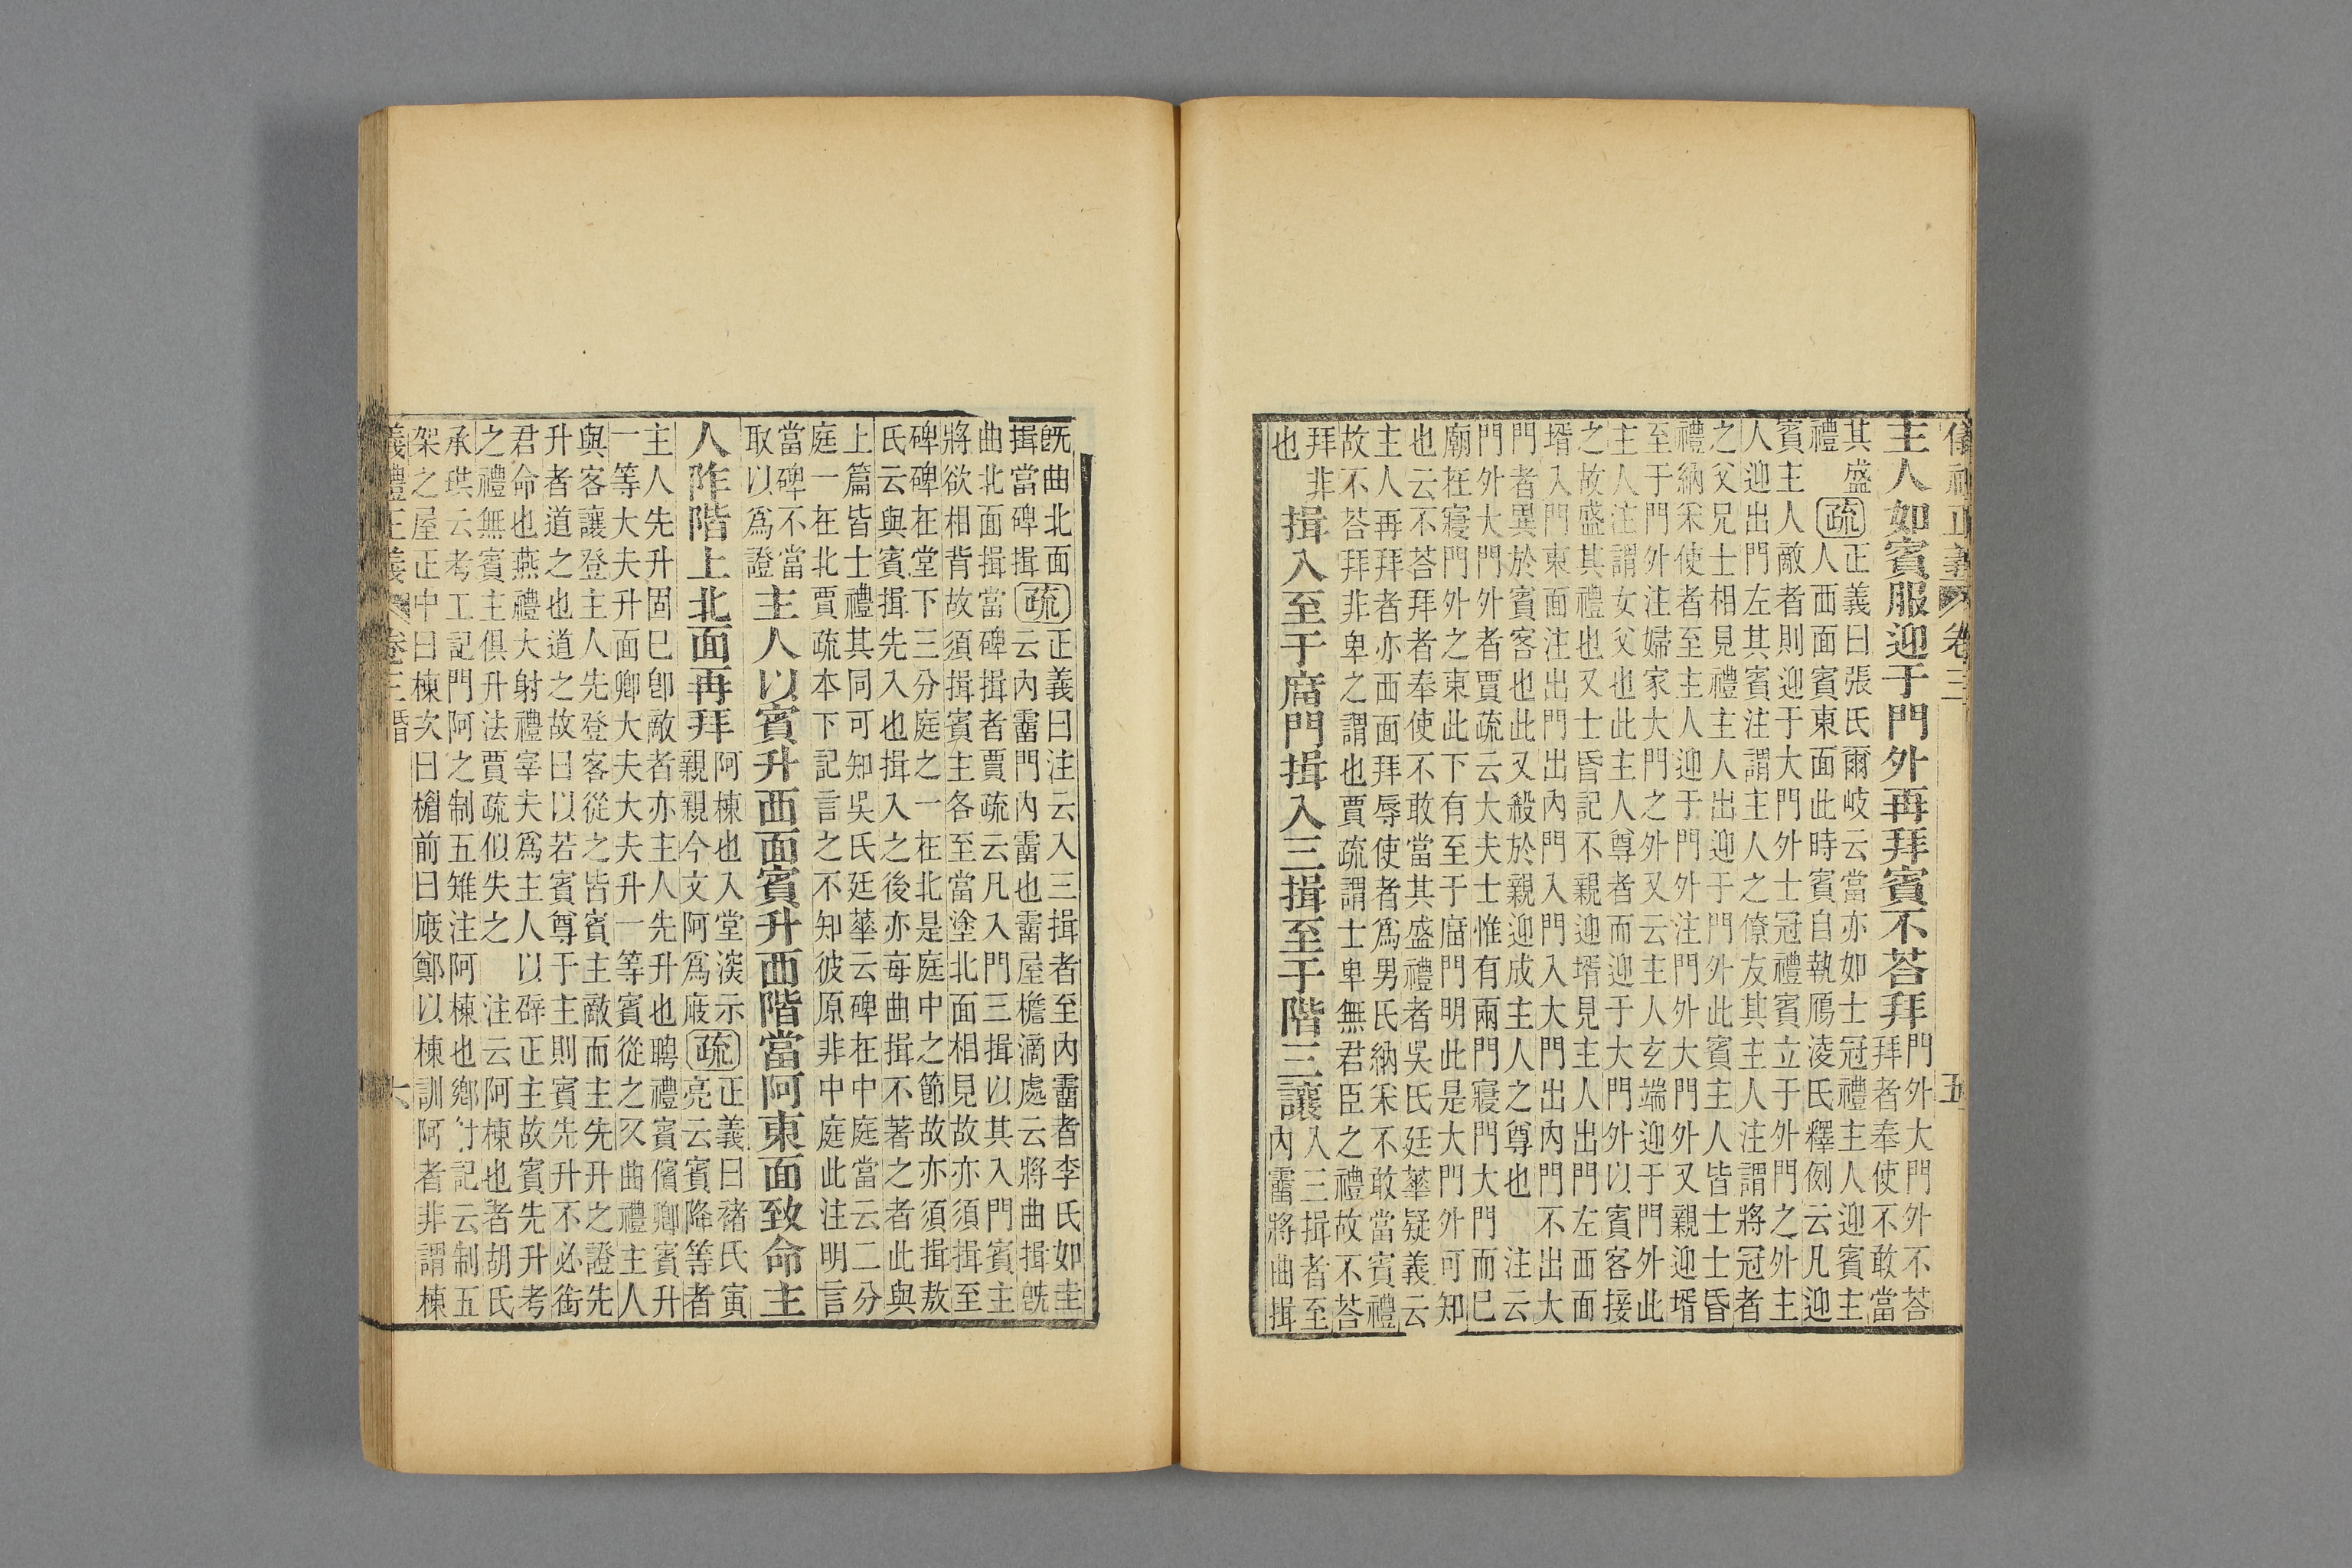 儀禮正義 卷三 五
主人如賓服迎于門外再拜賓不荅拜
門外大門外不荅
拜者奉使不敢當
其盛
禮
疏
正義曰張氏爾岐云當亦如士冠禮主人迎賓主
人西面賓東面此時賓自執鴈凌氏釋例云凡迎
賓主人敵者則迎于大門外士冠禮賓立于外門之外主
人迎出門左其賓注謂主人之僚友其主人注謂將冠者
之父兄士相見禮主人出迎于門外此賓主人皆士士昏
禮納采使者至主人迎于門外注門外大門外又親迎壻
至于門外注婦家大門之外又云主人玄端迎于門外此
主人注謂女父也此主人尊者而迎于大門外以賓客接
之故盛其禮也又士昏記不親迎壻見主人出門左西面
壻入門東面注出門出內門入門入大門出內門不出大
門者異於賓客也此又殺於親迎成主人之尊也 注云
門外大門外者賈疏云大夫士惟有兩門寢門大門而已
廟在寢門外之東此下有至于庿門明此是大門外可知
也云不荅拜者奉使不敢當其盛禮者吳氏廷華疑義云
主人再拜者亦西面拜辱使者爲男氏納采不敢當賓禮
故不荅拜非卑之謂也賈疏謂士卑無君臣之禮故不荅
拜非
也
揖入至于庿門揖入三揖至于階三讓
入三揖者至
內霤將曲揖
旣曲北面
揖當碑揖
疏
正義曰注云入三揖者至內霤者李氏如圭
云內霤門內霤也霤屋檐滴處云將曲揖旣
曲北面揖當碑揖者賈疏云凡入門三揖以其入門賓主
將欲相背故須揖賓主各至當塗北面相見故亦須揖至
碑碑在堂下三分庭之一在北是庭中之節故亦須揖敖
氏云與賓揖先入也揖入之後亦每曲揖不著之者此與
上篇皆士禮其同可知吳氏廷華云碑在中庭當云二分
庭一在北賈疏本下記言之不知彼原非中庭此注明言
當碑不當
取以爲證
主人以賓升西面賓升西階當阿東面致命主
人阼階上北面再拜
阿棟也入堂深示
親親今文阿爲庪
疏
正義曰褚氏寅
亮云賓降等者
主人先升固已卽敵者亦主人先升也聘禮賓儐卿賓升
一等大夫升面卿大夫大夫升一等賓從之又曲禮主人
與客讓登主人先登客從之皆賓主敵而主先升之證先
升者道之也道之故曰以若賓尊于主則賓先升不必銜
君命也燕禮大射禮宰夫爲主人以辟正主故賓先升考
之禮無賓主俱升法賈疏似失之 注云阿棟也者胡氏
承珙云考工記門阿之制五雉注阿棟也鄕射記云制五
架之屋正中曰棟次曰楣前曰庪鄭以棟訓阿者非謂棟
義禮正義 卷三 六